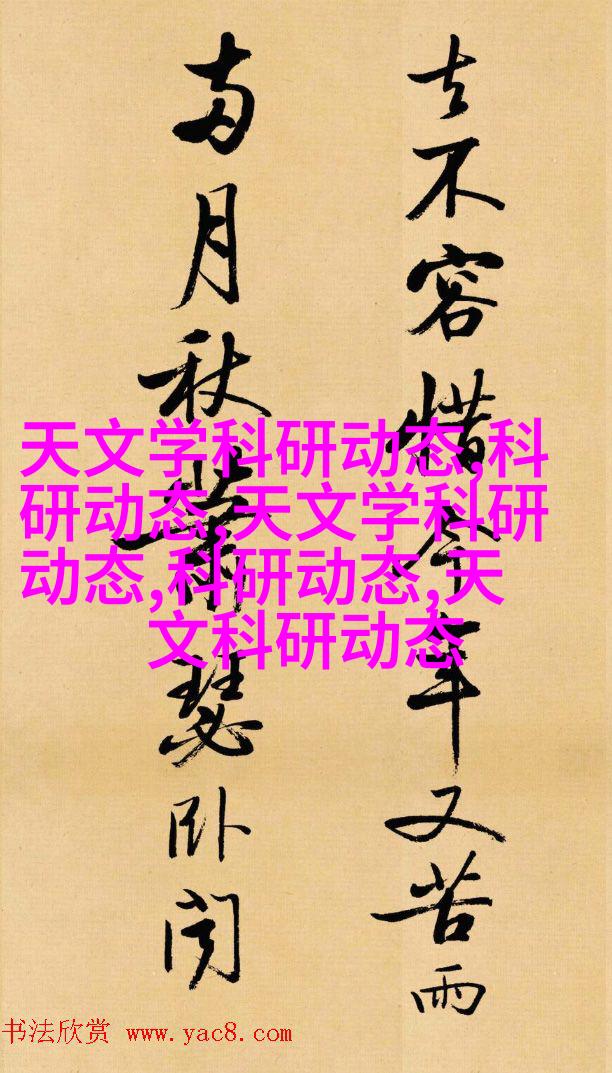 去不容惜今年又苦雨
两月秋蕭瑟卧闻
天文学科研动态,科
研动态,天文学科研
动态,科研动态,天
文科研动态
书法欣赏 www.yac8.com